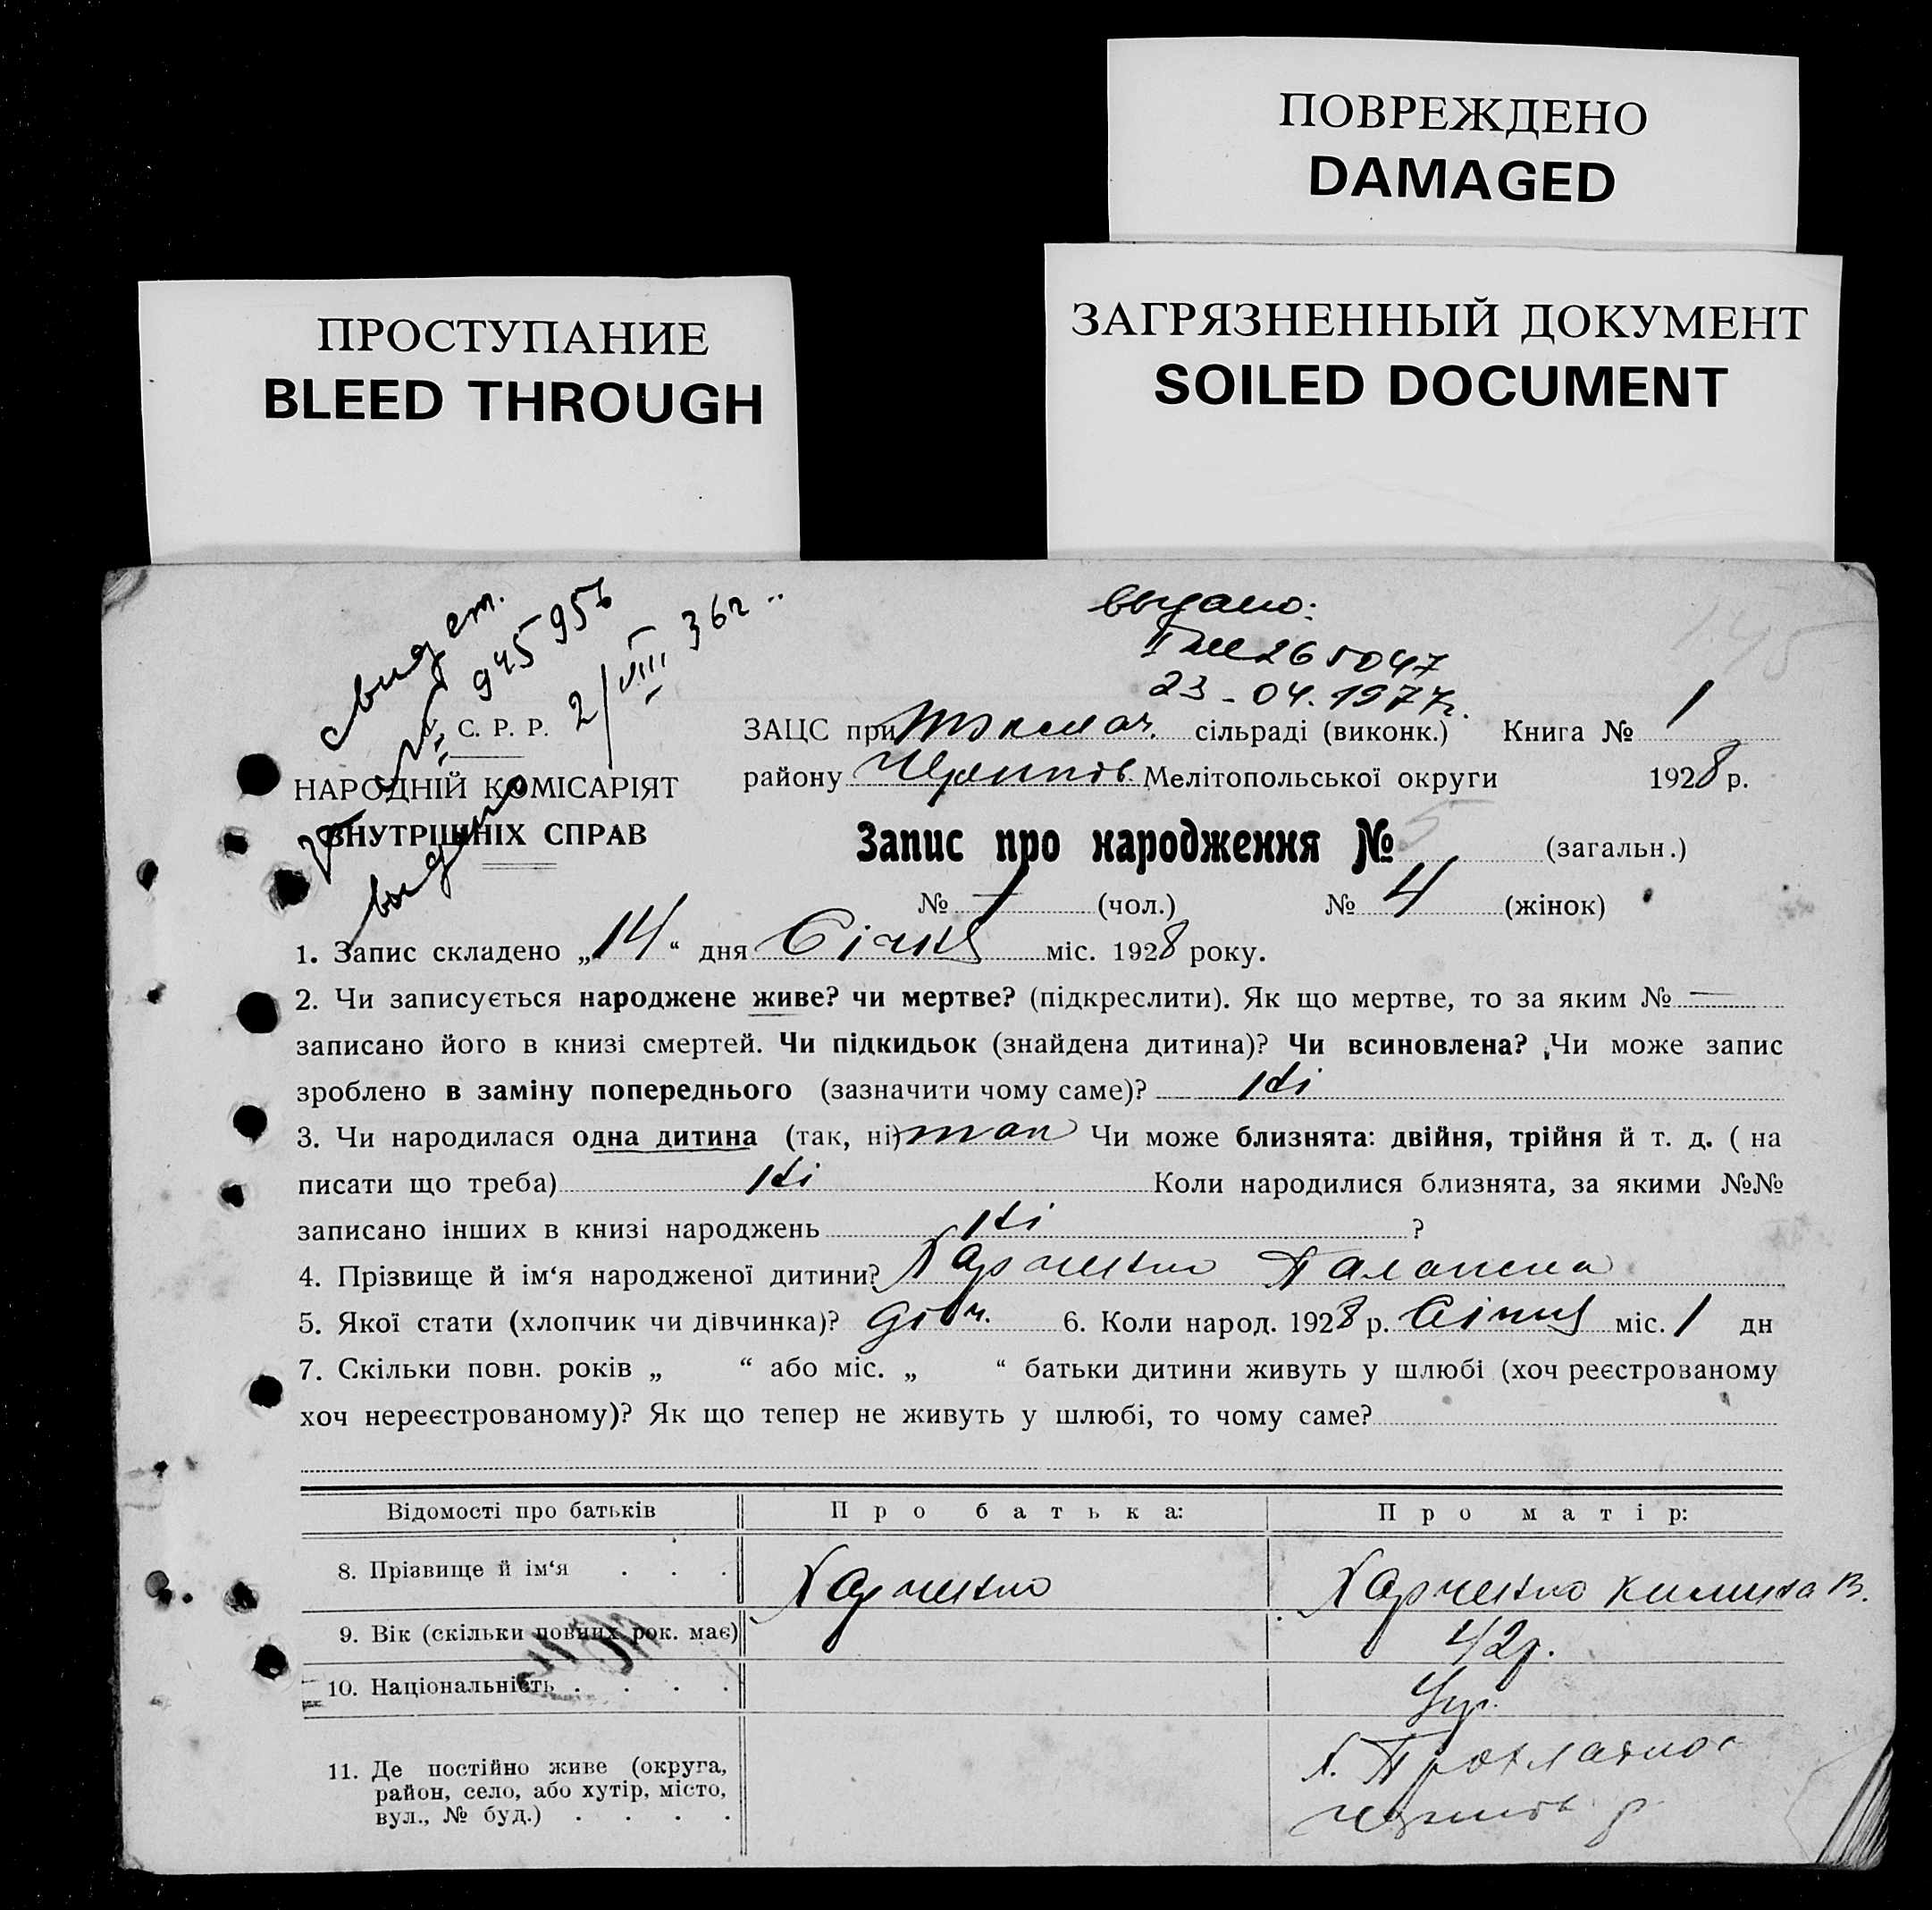 ПОВРЕЖДЕНО
DAMAGED
ПРОСТУПАНИЕ
BLEED THROUGH
ЗАГРЯЗНЕННЫЙ ДОКУМЕНТ
SOILED DOCUMENT
свидет.
№ 945956
2/VIII 36 г.
видано
выдано:
265047
23-04.1977г.
145
У. С. Р. Р.
НАРОДНІЙ КОМІСАРІЯТ
ВНУТРІШНІХ СПРАВ
ЗАЦС при Токмач. сільраді (виконк.) Книга № 1
району Черниг. Мелітопольської округи 1928 р.
Запис про народження № 5 (загальн.)
№ (чол.) № 4 (жінок)
1. Запис складено „14“ дня Січня міс. 1928 року.
2. Чи записується народжене живе? чи мертве? (підкреслити). Як що мертве, то за яким № —
записано його в книзі смертей. Чи підкидьок (знайдена дитина)? Чи всиновлена? Чи може запис
зроблено в заміну попереднього (зазначити чому саме)? Ні
3. Чи народилася одна дитина (так, ні) так Чи може близнята: двійня, трійня й т. д. ( на
писати що треба) Ні Коли народилися близнята, за якими №№
записано інших в книзі народжень Ні ?
4. Прізвище й ім‘я народженої дитини? Харченко Палажка
5. Якої стати (хлопчик чи дівчинка)? дівч. 6. Коли народ. 1928 р. Січня міс. 1 дн
7. Скільки повн. років „ “ або міс. „ “ батьки дитини живуть у шлюбі (хоч реєстрованому
хоч нереєстрованому)? Як що тепер не живуть у шлюбі, то чому саме?
Відомості про батьків Про батька: Про матір:
8. Прізвище й ім‘я . . . Харченко Харченко Килина В.
9. Вік (скільки повних рок. має) 42р.
10. Національність . . . . Укр.
11. Де постійно живе (округа,
район, село, або хутір, місто,
вул., № буд.) . . . .
х.
р.